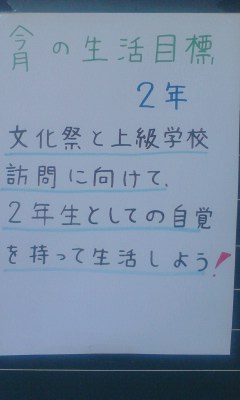 今月の生活目標
2年
文化祭と上級学校
訪問に向けて、
2年生としての自覚
を持って生活しよう!